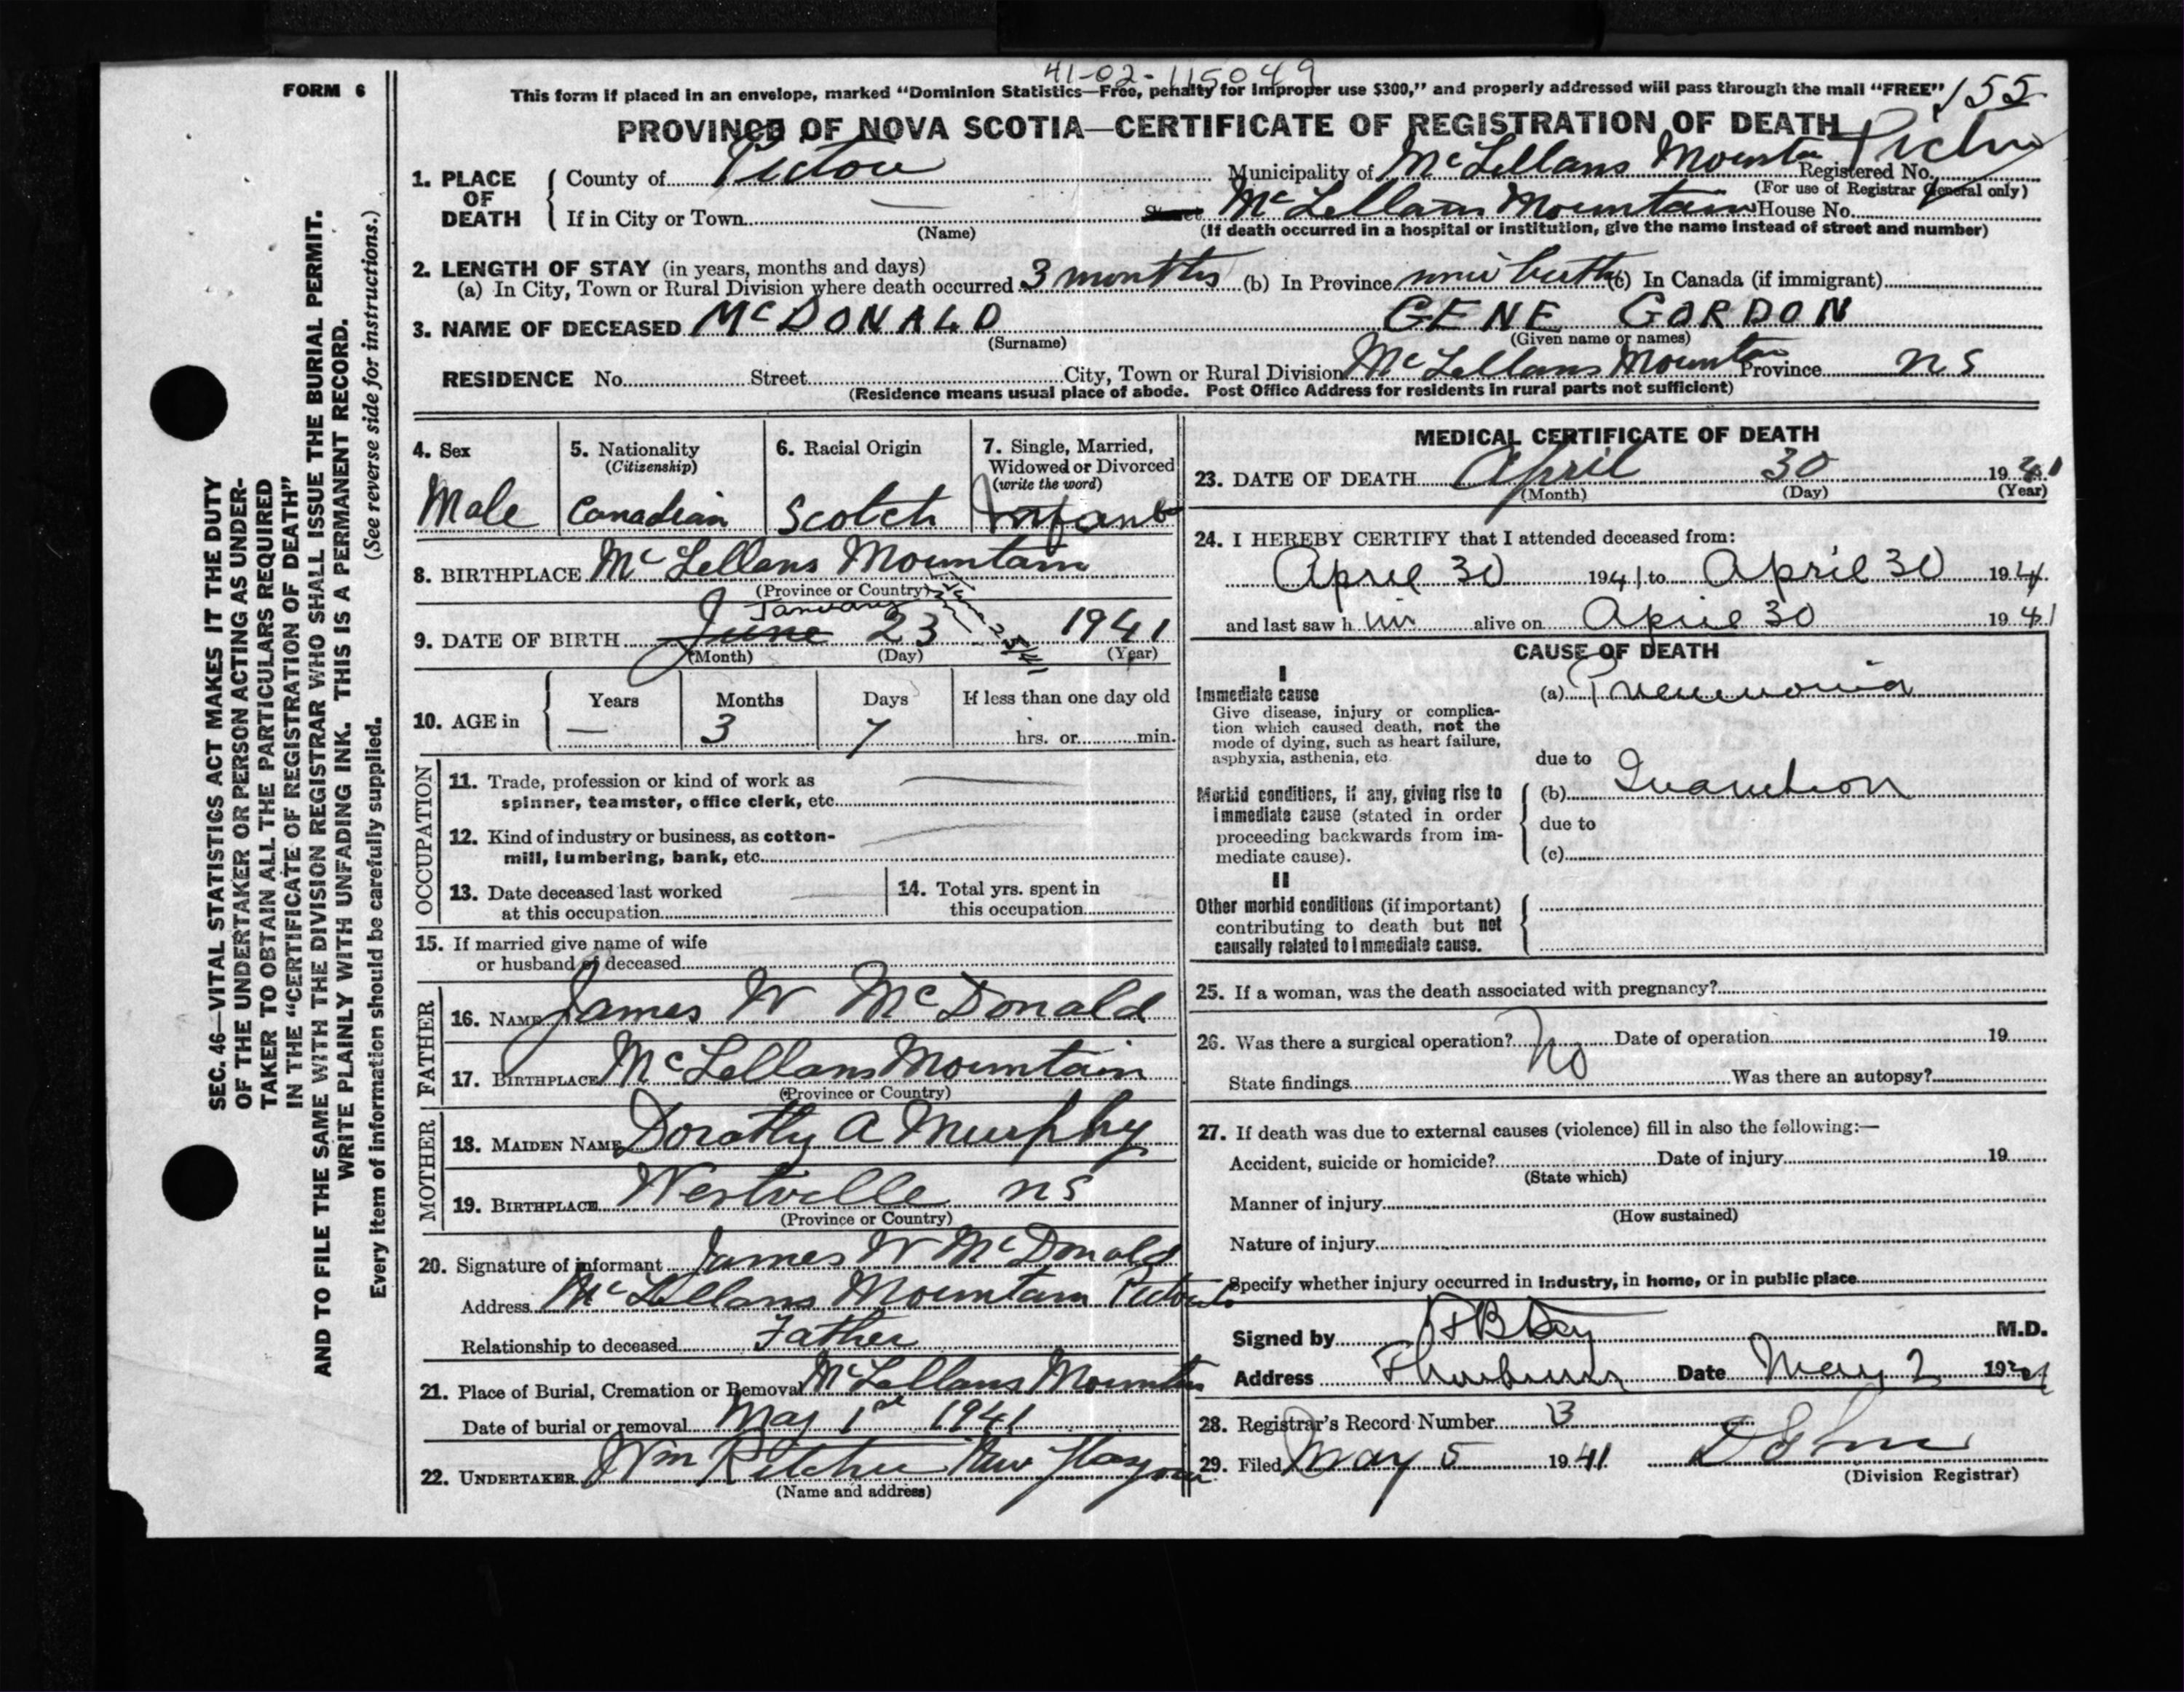 41-02-115049
FORM 6
This form if placed in an envelope, marked “Dominion Statistics—Free, penalty for improper use $300,” and properly addressed will pass through the mail “FREE”
155
PROVINCE OF NOVA SCOTIA—CERTIFICATE OF REGISTRATION OF DEATH
Pictou
1. PLACE OF DEATH
County of Pictou
Municipality of McLellans Mounta
Registered No.
(For use of Registrar General only)
If in City or Town —
(Name)
Street McLellans Mountain House No.
(If death occurred in a hospital or institution, give the name instead of street and number)
2. LENGTH OF STAY (in years, months and days)
(a) In City, Town or Rural Division where death occurred 3 months (b) In Province since birth (c) In Canada (if immigrant)
3. NAME OF DECEASED McDONALD GENE GORDON
(Surname) (Given name or names)
RESIDENCE No. Street City, Town or Rural Division McLellans Mountain Province NS
(Residence means usual place of abode. Post Office Address for residents in rural parts not sufficient)
4. Sex
Male
5. Nationality
(Citizenship)
Canadian
6. Racial Origin
Scotch
7. Single, Married,
Widowed or Divorced
(write the word)
Infant
8. BIRTHPLACE McLellans Mountain
(Province or Country)
January
9. DATE OF BIRTH June 23 1941
(Month) (Day) (Year)
10. AGE in
Years Months Days If less than one day old
— 3 7 hrs. or min.
OCCUPATION
11. Trade, profession or kind of work as
spinner, teamster, office clerk, etc.
12. Kind of industry or business, as cotton-
mill, lumbering, bank, etc.
13. Date deceased last worked
at this occupation
14. Total yrs. spent in
this occupation
15. If married give name of wife
or husband of deceased
FATHER
16. NAME James W McDonald
17. BIRTHPLACE McLellans Mountain
(Province or Country)
MOTHER
18. MAIDEN NAME Dorothy A Murphy
19. BIRTHPLACE Westville NS
(Province or Country)
20. Signature of informant James W McDonald
Address McLellans Mountain Pictou Co
Relationship to deceased Father
21. Place of Burial, Cremation or Removal McLellans Mountain
Date of burial or removal May 1st 1941
22. UNDERTAKER Wm Ritchie New Glasgow
(Name and address)
MEDICAL CERTIFICATE OF DEATH
23. DATE OF DEATH April 30 1941
(Month) (Day) (Year)
24. I HEREBY CERTIFY that I attended deceased from:
April 30 1941 to April 30 1941
and last saw h im alive on April 30 1941
CAUSE OF DEATH
I
Immediate cause
Give disease, injury or complica-
tion which caused death, not the
mode of dying, such as heart failure,
asphyxia, asthenia, etc
(a) Pneumonia
due to
Morbid conditions, if any, giving rise to
immediate cause (stated in order
proceeding backwards from im-
mediate cause).
(b) Inanition
due to
(c)
II
Other morbid conditions (if important)
contributing to death but not
causally related to immediate cause.
25. If a woman, was the death associated with pregnancy?
26. Was there a surgical operation? No Date of operation 19
State findings Was there an autopsy?
27. If death was due to external causes (violence) fill in also the following:—
Accident, suicide or homicide? Date of injury 19
(State which)
Manner of injury
(How sustained)
Nature of injury
Specify whether injury occurred in industry, in home, or in public place
Signed by M.D.
Address Thorburn Date May 2 1941
28. Registrar's Record Number 13
29. Filed May 5 1941
(Division Registrar)
SEC. 46—VITAL STATISTICS ACT MAKES IT THE DUTY
OF THE UNDERTAKER OR PERSON ACTING AS UNDER-
TAKER TO OBTAIN ALL THE PARTICULARS REQUIRED
IN THE “CERTIFICATE OF REGISTRATION OF DEATH”
AND TO FILE THE SAME WITH THE DIVISION REGISTRAR WHO SHALL ISSUE THE BURIAL PERMIT.
WRITE PLAINLY WITH UNFADING INK. THIS IS A PERMANENT RECORD.
Every item of information should be carefully supplied. (See reverse side for instructions.)